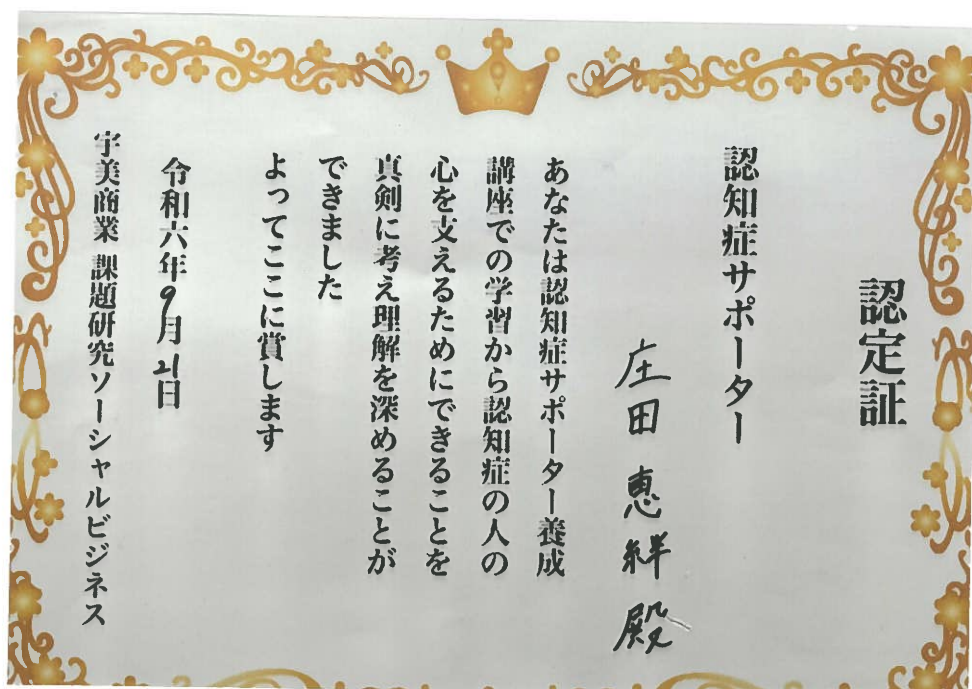 認定証
認知症サポーター
庄田 恵絆 殿
あなたは認知症サポーター養成
講座での学習から認知症の人の
心を支えるためにできることを
真剣に考え理解を深めることが
できました
よってここに賞します
令和六年9月21日
宇美商業 課題研究ソーシャルビジネス